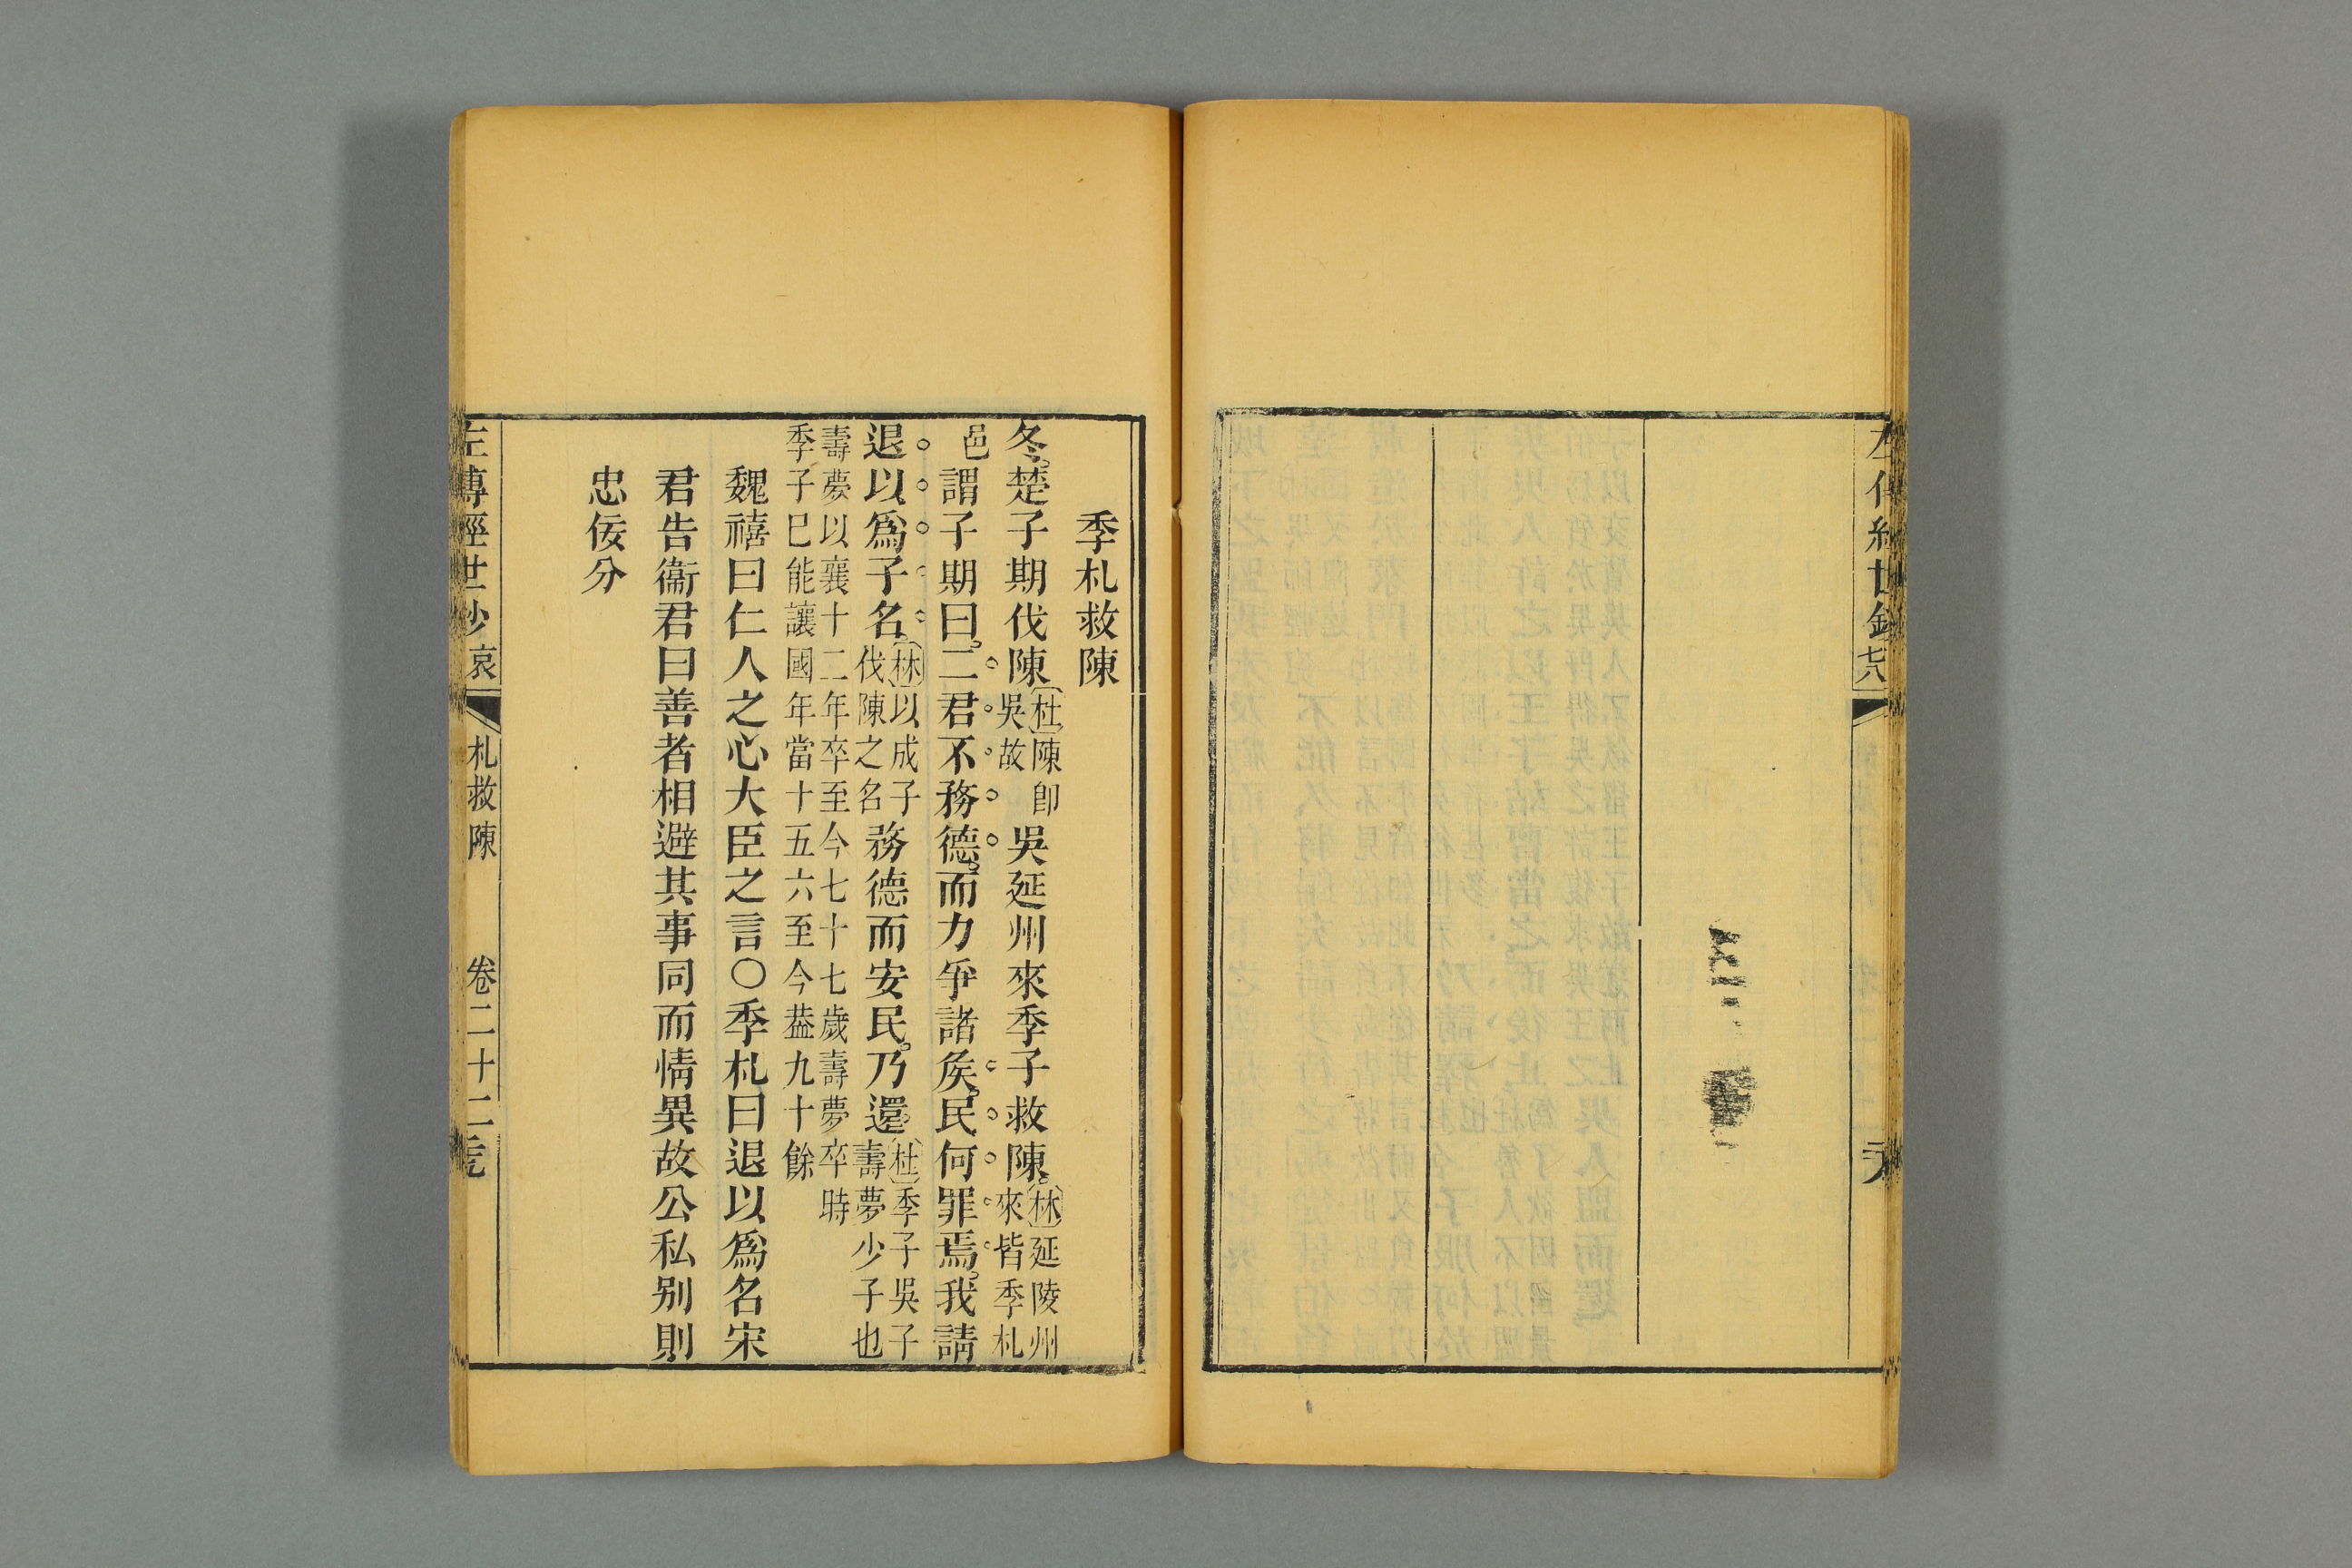 季札救陳
冬楚子期伐陳杜陳卽吳故吳延州來季子救陳林延陵州來皆季札
邑謂子期曰二君不務德而力爭諸矦民何罪焉我請
退以爲子名林以成子伐陳之名務德而安民乃還杜季子吳子壽夢少子也
壽夢以襄十二年卒至今七十七歲壽夢卒時季子已能讓國年當十五六至今葢九十餘
魏禧曰仁人之心大臣之言〇季札曰退以爲名宋
君告衞君曰善者相避其事同而情異故公私别則
忠佞分
左傳經世鈔 哀 札救陳 卷二十二